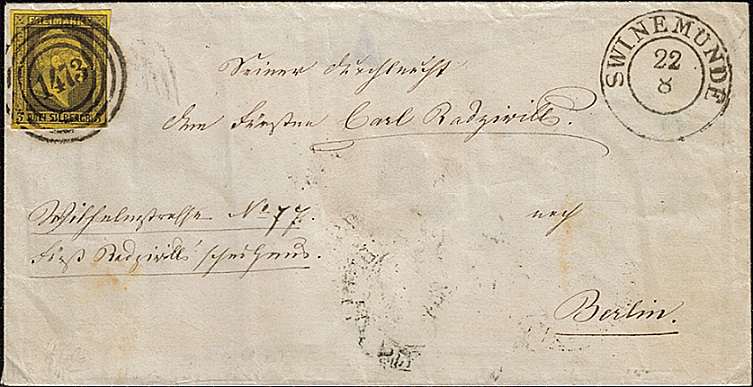 FREIMARKE
1473
3 DREI SILBERGR. 3
SWINEMÜNDE
22
8
Seiner Durchlaucht
dem Fürsten Carl Radziwill.
Wilhelmstrasse No 77.
Fürst Radziwill'sches Haus.
nach
Berlin.